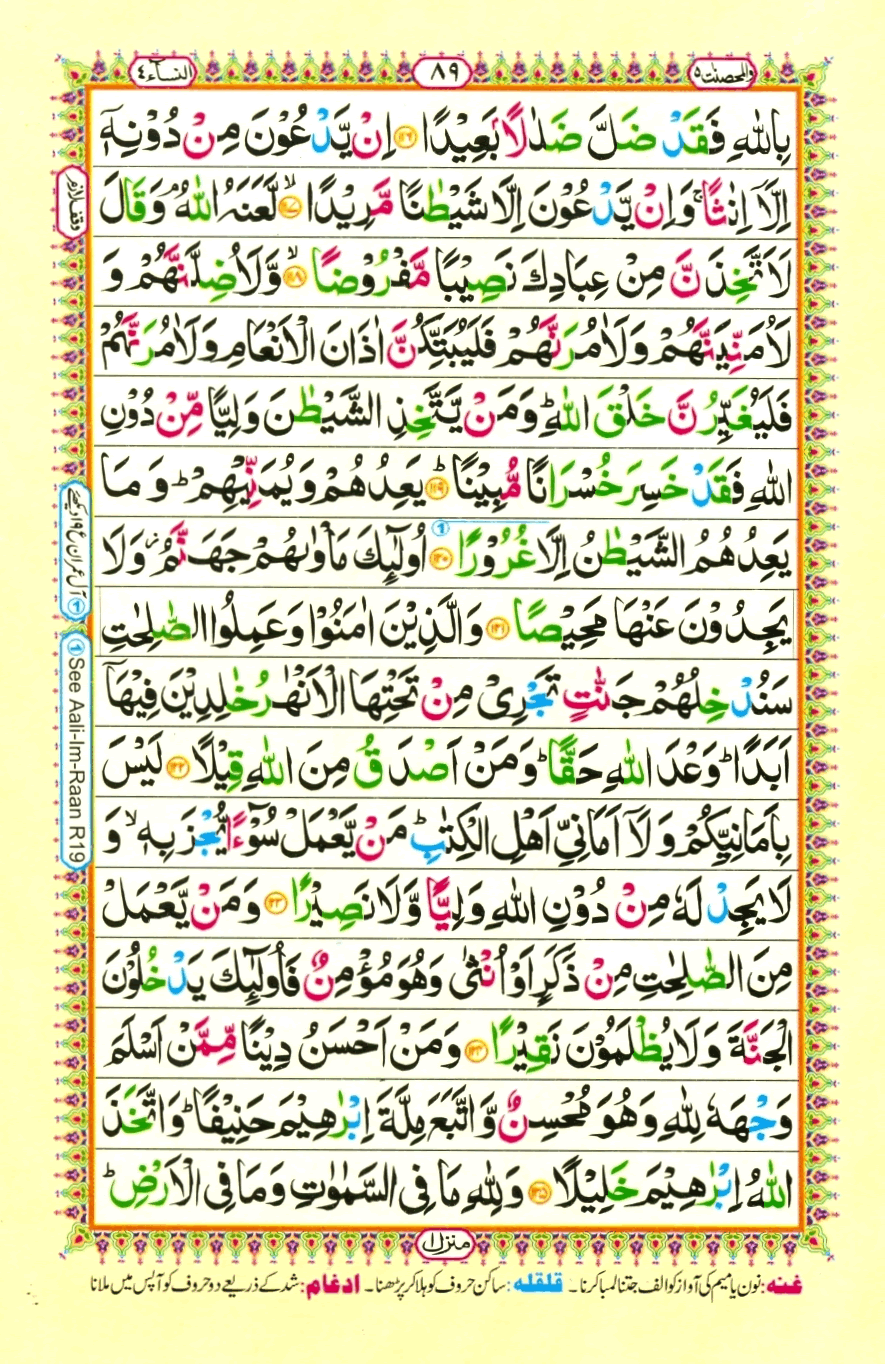 والمحصنت ٥
٨٩
النسآء ٤
بِاللّٰهِ فَقَدْ ضَلَّ ضَلٰلًا بَعِيْدًا ۝١١٦ اِنْ يَّدْعُوْنَ مِنْ دُوْنِهٖٓ
اِلَّاۤ اِنٰثًا ۚ وَاِنْ يَّدْعُوْنَ اِلَّا شَيْطٰنًا مَّرِيْدًا ۙ۝١١٧ لَّعَنَهُ اللّٰهُ ۘ وَقَالَ
لَاَتَّخِذَنَّ مِنْ عِبَادِكَ نَصِيْبًا مَّفْرُوْضًا ۙ۝١١٨ وَّلَاُضِلَّنَّهُمْ وَ
لَاُمَنِّيَنَّهُمْ وَلَاٰمُرَنَّهُمْ فَلَيُبَتِّكُنَّ اٰذَانَ الْاَنْعَامِ وَلَاٰمُرَنَّهُمْ
فَلَيُغَيِّرُنَّ خَلْقَ اللّٰهِ ؕ وَمَنْ يَّتَّخِذِ الشَّيْطٰنَ وَلِيًّا مِّنْ دُوْنِ
اللّٰهِ فَقَدْ خَسِرَ خُسْرَانًا مُّبِيْنًا ؕ۝١١٩ يَعِدُهُمْ وَيُمَنِّيْهِمْ ؕ وَمَا
يَعِدُهُمُ الشَّيْطٰنُ اِلَّا غُرُوْرًا ۝١٢٠ اُولٰٓئِكَ مَاْوٰىهُمْ جَهَنَّمُ ؗ وَلَا
يَجِدُوْنَ عَنْهَا مَحِيْصًا ۝١٢١ وَالَّذِيْنَ اٰمَنُوْا وَعَمِلُوا الصّٰلِحٰتِ
سَنُدْخِلُهُمْ جَنّٰتٍ تَجْرِيْ مِنْ تَحْتِهَا الْاَنْهٰرُ خٰلِدِيْنَ فِيْهَاۤ
اَبَدًا ؕ وَعْدَ اللّٰهِ حَقًّا ؕ وَمَنْ اَصْدَقُ مِنَ اللّٰهِ قِيْلًا ۝١٢٢ لَيْسَ
بِاَمَانِيِّكُمْ وَلَاۤ اَمَانِيِّ اَهْلِ الْكِتٰبِ ؕ مَنْ يَّعْمَلْ سُوْٓءًا يُّجْزَ بِهٖ ۙ وَ
لَا يَجِدْ لَهٗ مِنْ دُوْنِ اللّٰهِ وَلِيًّا وَّلَا نَصِيْرًا ۝١٢٣ وَمَنْ يَّعْمَلْ
مِنَ الصّٰلِحٰتِ مِنْ ذَكَرٍ اَوْ اُنْثٰى وَهُوَ مُؤْمِنٌ فَاُولٰٓئِكَ يَدْخُلُوْنَ
الْجَنَّةَ وَلَا يُظْلَمُوْنَ نَقِيْرًا ۝١٢٤ وَمَنْ اَحْسَنُ دِيْنًا مِّمَّنْ اَسْلَمَ
وَجْهَهٗ لِلّٰهِ وَهُوَ مُحْسِنٌ وَّاتَّبَعَ مِلَّةَ اِبْرٰهِيْمَ حَنِيْفًا ؕ وَاتَّخَذَ
اللّٰهُ اِبْرٰهِيْمَ خَلِيْلًا ۝١٢٥ وَلِلّٰهِ مَا فِي السَّمٰوٰتِ وَمَا فِي الْاَرْضِ ؕ
وقف لازم
① آل عمران ع ١٩ دیکھئے
① See Aali-Im-Raan R19
منزل ١
غنه: نون یا میم کی آواز کو الف جتنا لمبا کرنا ۔ قلقله: ساکن حروف کو ہلا کر پڑھنا ۔ ادغام: شد کے ذریعے دو حروف کو آپس میں ملانا